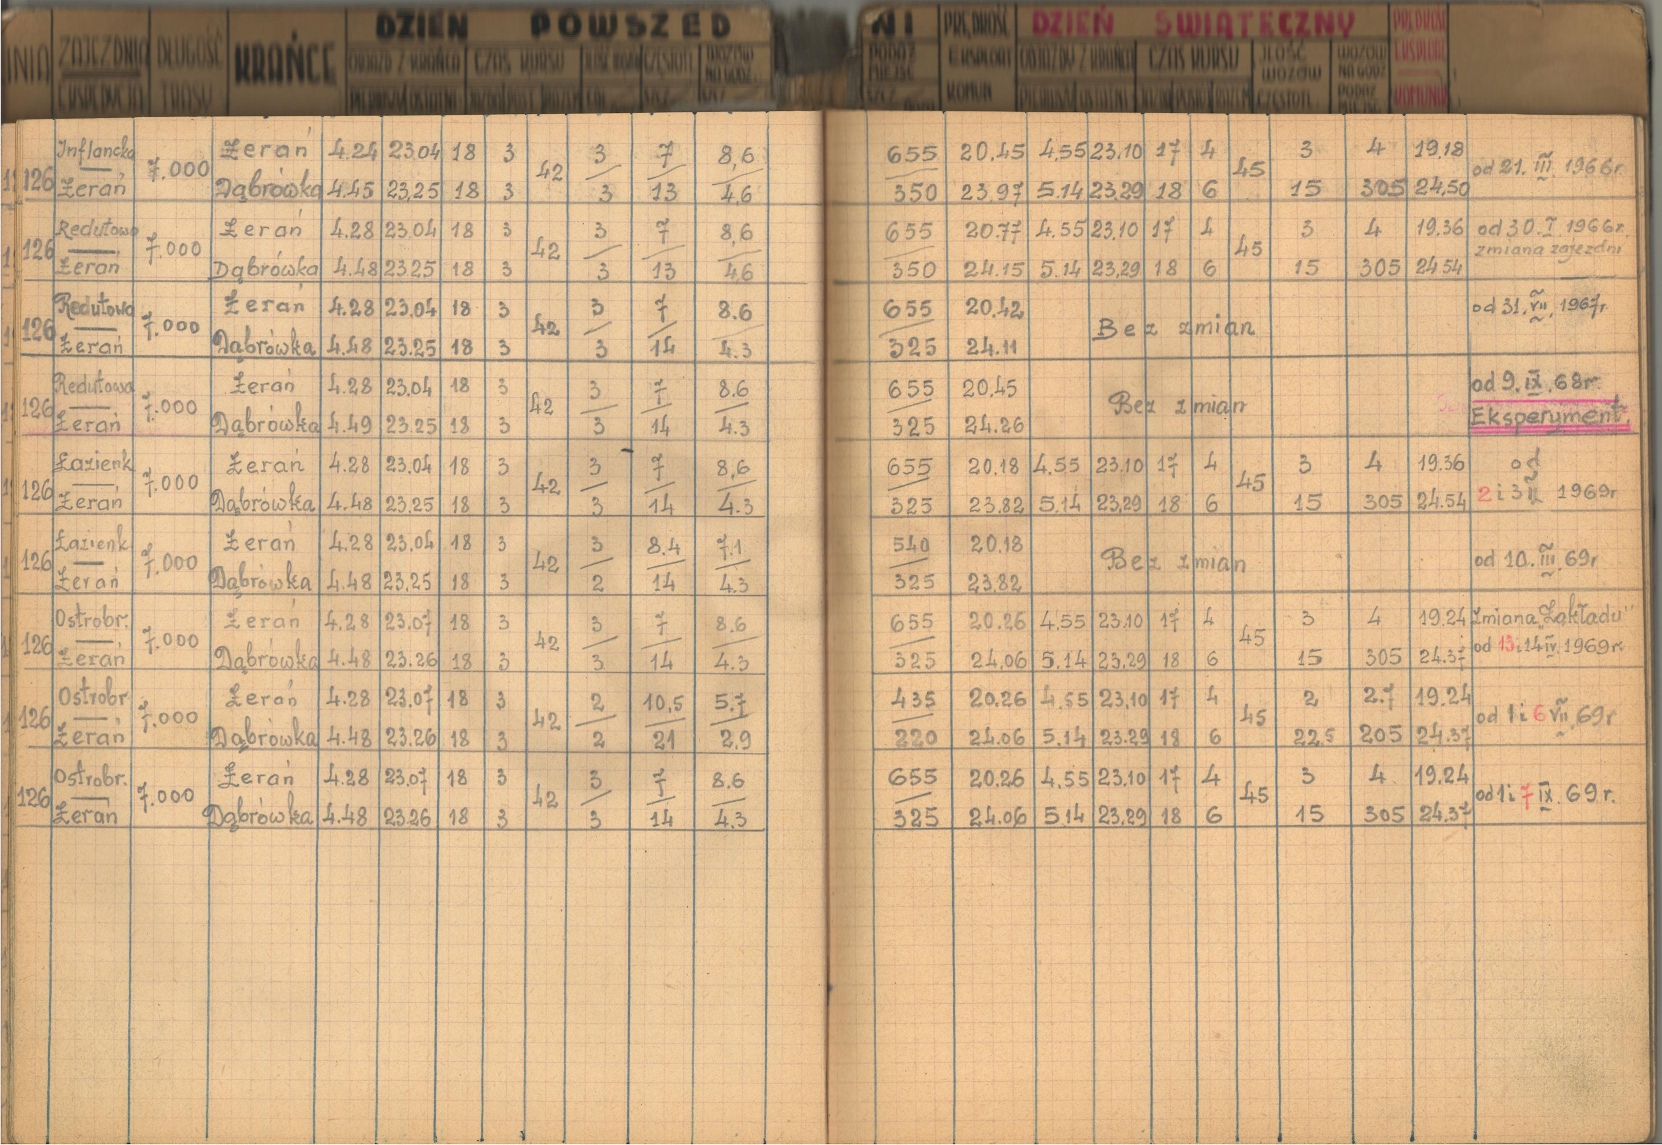 DZIEŃ POWSZEDNI PRĘDKOŚĆ DZIEŃ ŚWIĄTECZNY PRĘDKOŚĆ
ZAJEZDNIA DŁUGOŚĆ KRAŃCE ODJAZD Z KRAŃCA CZAS KURSU CZĘSTOTL WOZÓW NA GODZ. PODAŻ MIEJSC EKSPLOAT ODJAZDY Z KRAŃCA CZAS KURSU ILOŚĆ WOZÓW WOZÓW NA GODZ EKSPLOAT
EKSPEDYCJA TRASY KOMUN CZĘSTOTL PODAŻ MIEJSC KOMUNIK
Inflancka Żerań 4.24 23.04 18 3 3 7 8,6 655 20.45 4.55 23.10 17 4 3 4 19.18
126 7.000 42 45 od 21. III 1966r.
Żerań Dąbrówka 4.45 23.25 18 3 3 13 4,6 350 23.97 5.14 23.29 18 6 15 305 24.50
Redutowa Żerań 4.28 23.04 18 3 3 7 8,6 655 20.77 4.55 23.10 17 4 3 4 19.36 od 30. I 1966r.
126 7.000 42 45 zmiana zajezdni
Żerań Dąbrówka 4.48 23.25 18 3 3 13 4,6 350 24.15 5.14 23.29 18 6 15 305 24.54
Redutowa Żerań 4.28 23.04 18 3 3 7 8.6 655 20.42 od 31. VII. 1967r.
126 7.000 42 Bez zmian
Żerań Dąbrówka 4.48 23.25 18 3 3 14 4.3 325 24.11
Redutowa Żerań 4.28 23.04 18 3 3 7 8.6 655 20.45 od 9. IX. 68r.
126 7.000 42 Bez zmian
Żerań Dąbrówka 4.49 23.25 18 3 3 14 4.3 325 24.26 Eksperyment.
Łazienk Żerań 4.28 23.04 18 3 3 7 8,6 655 20.18 4.55 23.10 17 4 3 4 19.36 od
126 7.000 42 45 2 i 3 II 1969r
Żerań Dąbrówka 4.48 23.25 18 3 3 14 4.3 325 23.82 5.14 23.29 18 6 15 305 24.54
Łazienk Żerań 4.28 23.04 18 3 3 8.4 7.1 540 20.18
126 7.000 42 Bez zmian od 10. III. 69r
Żerań Dąbrówka 4.48 23.25 18 3 2 14 4.3 325 23.82
Ostrobr. Żerań 4.28 23.07 18 3 3 7 8.6 655 20.26 4.55 23.10 17 4 3 4 19.24 Zmiana „Zakładu"
126 7.000 42 45 od 13 i 14 IV. 1969r.
Żerań Dąbrówka 4.48 23.26 18 3 3 14 4.3 325 24.06 5.14 23.29 18 6 15 305 24.37
Ostrobr Żerań 4.28 23.07 18 3 2 10,5 5.7 435 20.26 4.55 23.10 17 4 2 2.7 19.24
126 7.000 42 45 od 1 i 6 VII. 69r
Żerań Dąbrówka 4.48 23.26 18 3 2 21 2.9 220 24.06 5.14 23.29 18 6 22.5 205 24.37
Ostrobr. Żerań 4.28 23.07 18 3 3 7 8.6 655 20.26 4.55 23.10 17 4 3 4 19.24
126 7.000 42 45 od 1 i 7 IX. 69r.
Żerań Dąbrówka 4.48 23.26 18 3 3 14 4.3 325 24.06 5.14 23.29 18 6 15 305 24.37